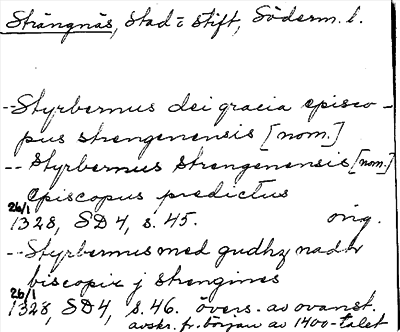 Strängnäs, stad o stift, Söderm. l.
--Styrbernus dei gracia episco-
pus strengenensis [nom.]
-- Styrbernus strengenensis [nom.]
episcopus predictus
26/1
1328, SD 4, s. 45. orig.
--Styrbernus med gudhz nadh
biscopir j strengines
26/1
1328, SD4, s. 46. övers. av ovanst.
avskr. fr. början av 1400-talet